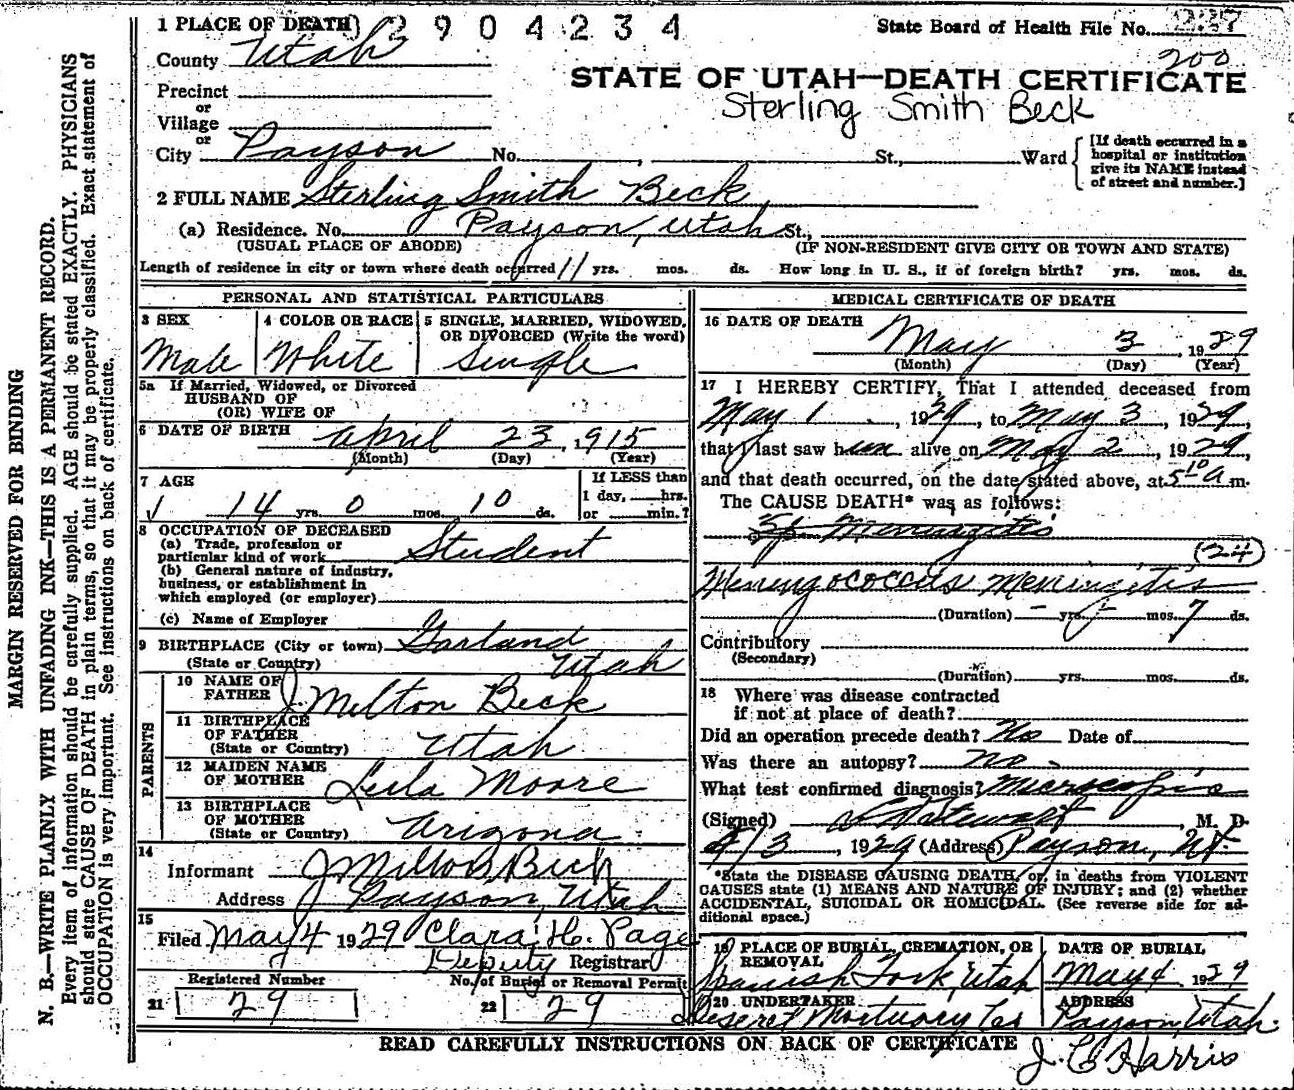 1 PLACE OF DEATH 2904234 State Board of Health File No. 227
County Utah 200
STATE OF UTAH—DEATH CERTIFICATE
Precinct
or
Sterling Smith Beck
Village
or
City Payson No. , St., Ward
[If death occurred in a
hospital or institution
give its NAME instead
of street and number.]
2 FULL NAME Sterling Smith Beck
(a) Residence. No. Payson, Utah St.,
(USUAL PLACE OF ABODE) (IF NON-RESIDENT GIVE CITY OR TOWN AND STATE)
Length of residence in city or town where death occurred 11 yrs. mos. ds. How long in U. S., if of foreign birth? yrs. mos. ds.
PERSONAL AND STATISTICAL PARTICULARS
3 SEX
Male
4 COLOR OR RACE
White
5 SINGLE, MARRIED, WIDOWED,
OR DIVORCED (Write the word)
Single
5a If Married, Widowed, or Divorced
HUSBAND OF
(OR) WIFE OF
6 DATE OF BIRTH April 23, 1915
(Month) (Day) (Year)
7 AGE
14 yrs. 0 mos. 10 ds.
If LESS than
1 day, hrs.
or min.?
8 OCCUPATION OF DECEASED
(a) Trade, profession or
particular kind of work Student
(b) General nature of industry,
business, or establishment in
which employed (or employer)
(c) Name of Employer
9 BIRTHPLACE (City or town) Garland
(State or Country) Utah
PARENTS
10 NAME OF
FATHER J. Milton Beck
11 BIRTHPLACE
OF FATHER
(State or Country) Utah
12 MAIDEN NAME
OF MOTHER Leila Moore
13 BIRTHPLACE
OF MOTHER
(State or Country) Arizona
14
Informant J Milton Beck
Address Payson, Utah
15
Filed May 4 1929 Clara H. Page
Deputy Registrar
Registered Number
21 29
No. of Burial or Removal Permit
22 29
MEDICAL CERTIFICATE OF DEATH
16 DATE OF DEATH
May 3, 1929
(Month) (Day) (Year)
17 I HEREBY CERTIFY, That I attended deceased from
May 1, 1929, to May 3, 1929,
that I last saw him alive on May 2, 1929,
and that death occurred, on the date stated above, at 5 10 a m.
The CAUSE DEATH* was as follows:
Meningitis
(24)
Meningococcus Meningitis
(Duration) - yrs. - mos. 7 ds.
Contributory
(Secondary)
(Duration) yrs. mos. ds.
18 Where was disease contracted
if not at place of death?
Did an operation precede death? No Date of
Was there an autopsy? No
What test confirmed diagnosis? Microscopic
(Signed) , M. D.
5/3, 1929 (Address) Payson, Ut.
*State the DISEASE CAUSING DEATH, or, in deaths from VIOLENT
CAUSES state (1) MEANS AND NATURE OF INJURY; and (2) whether
ACCIDENTAL, SUICIDAL OR HOMICIDAL. (See reverse side for ad-
ditional space.)
19 PLACE OF BURIAL, CREMATION, OR
REMOVAL
Spanish Fork, Utah
DATE OF BURIAL
May 4 1929
20 UNDERTAKER
Deseret Mortuary Co
ADDRESS
Payson, Utah.
READ CAREFULLY INSTRUCTIONS ON BACK OF CERTIFICATE
J. E. Harris
MARGIN RESERVED FOR BINDING
N. B.—WRITE PLAINLY WITH UNFADING INK—THIS IS A PERMANENT RECORD.
Every item of information should be carefully supplied. AGE should be stated EXACTLY. PHYSICIANS
should state CAUSE OF DEATH in plain terms, so that it may be properly classified. Exact statement of
OCCUPATION is very important. See instructions on back of certificate.